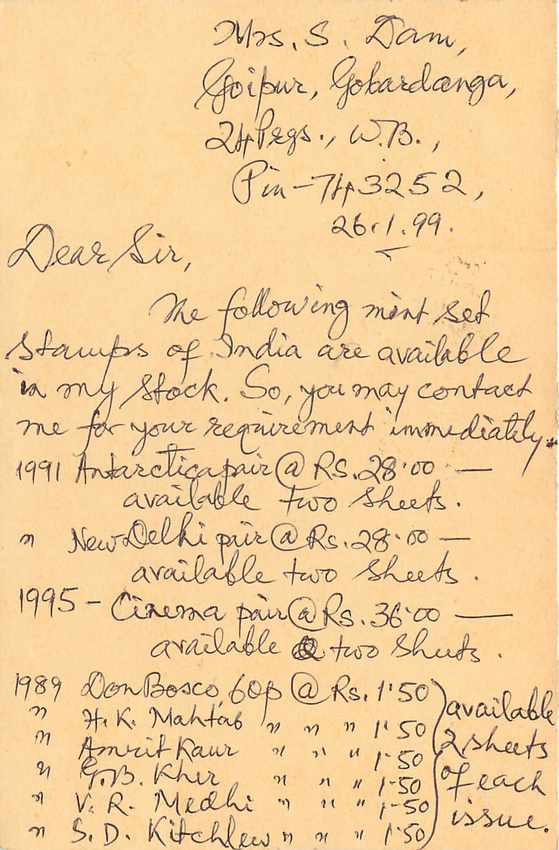 Mrs. S. Dam,
Goipur, Gobardanga,
24 Prgs., W.B.,
Pin - 743252,
26.1.99.
Dear Sir,
The following mint set
stamps of India are available
in my stock. So, you may contact
me for your requirement immediately.
1991 Antarctica pair @ Rs. 28.00 —
available two sheets.
" New Delhi pair @ Rs. 28.00 —
available two sheets.
1995 - Cinema pair @ Rs. 36.00 —
available two sheets.
1989 Don Bosco, 60p @ Rs. 1.50
" H. K. Mahtab " " " 1.50
" Amrit Kaur " " " 1.50
" G. B. Kher " " " 1.50
" V. R. Medhi " " " 1.50
" S. D. Kitchlew " " " 1.50
available
2 sheets
of each
issue.